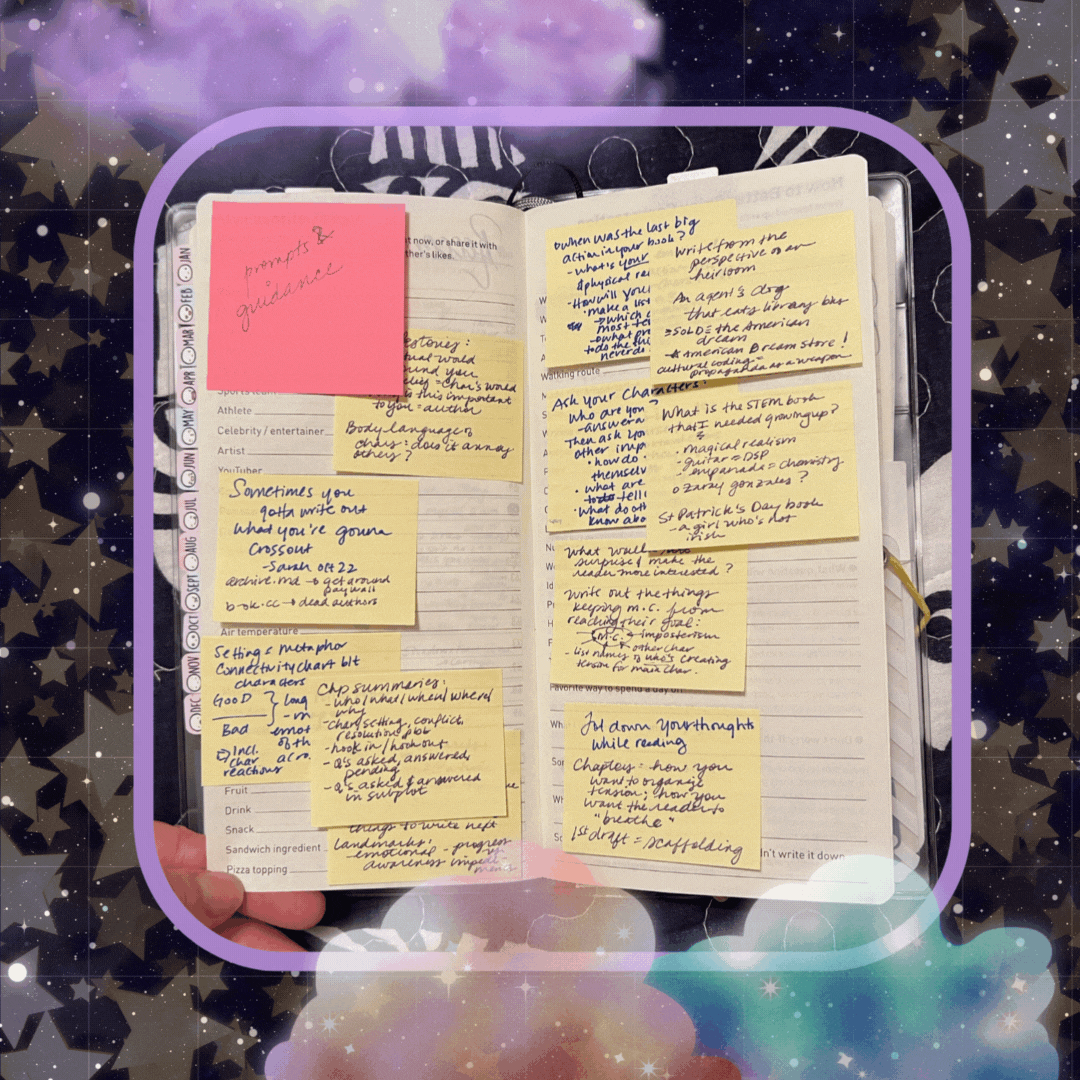 prompts &
guidance
now, or share it with
ther's likes.
JAN
FEB
MAR
APR
MAY
JUN
JUL
AUG
SEPT
OCT
NOV
DEC
Athlete
Celebrity / entertainer
Artist
YouTuber
to you = author
Body language of
chars: does it annoy
others?
Sometimes you
gotta write out
what you're gonna
crossout
-Sarah oct 22
archive.md → get around
paywall
b-ok.cc → dead authors
Air temperature
Setting = metaphor
Connectivity chart b/t
characters
GOOD
Bad
long
emot
of th
incl.
char
reactions
Chp summaries:
- who/what/when/where/
why
- char, setting, conflict,
resolution, prob
- hook in/hook out
- Q's asked, answered,
pending
- Q's asked & answered
in subplot
Fruit
Drink
Snack
Sandwich ingredient
Pizza topping
things to write next
Landmarks:
emotional - progress
awareness
when was the last big
action in your book?
- what's your
& physical
- How will you
• make a list
→ which
most
→ what
to do the
never
Write from the
perspective of an
heirloom
An agent's dog
that eats library bks
SOLD = the American
dream
American Dream Store!
cultural coding =
propaganda as a weapon
Walking route
Ask your Characters:
who are you?
Then ask
other
• how do
themselv
• what are
• what do
know abo
What is the STEM book
that I needed growing up?
• magical realism
- guitar = DSP
- empanada = chemistry
St Patrick's Day book
- a girl who's not
irish
what would
surprise & make the
reader more interested?
Write out the things
keeping m.c. from
reaching their goal:
m.c. & imposterism
& other char
- list names of who's creating
tension for main char.
Favorite way to spend a day off
Jot down your thoughts
while reading
Chapters = how you
want to organize
tension; how you
want the reader to
"breathe"
1st draft = scaffolding
n't write it down